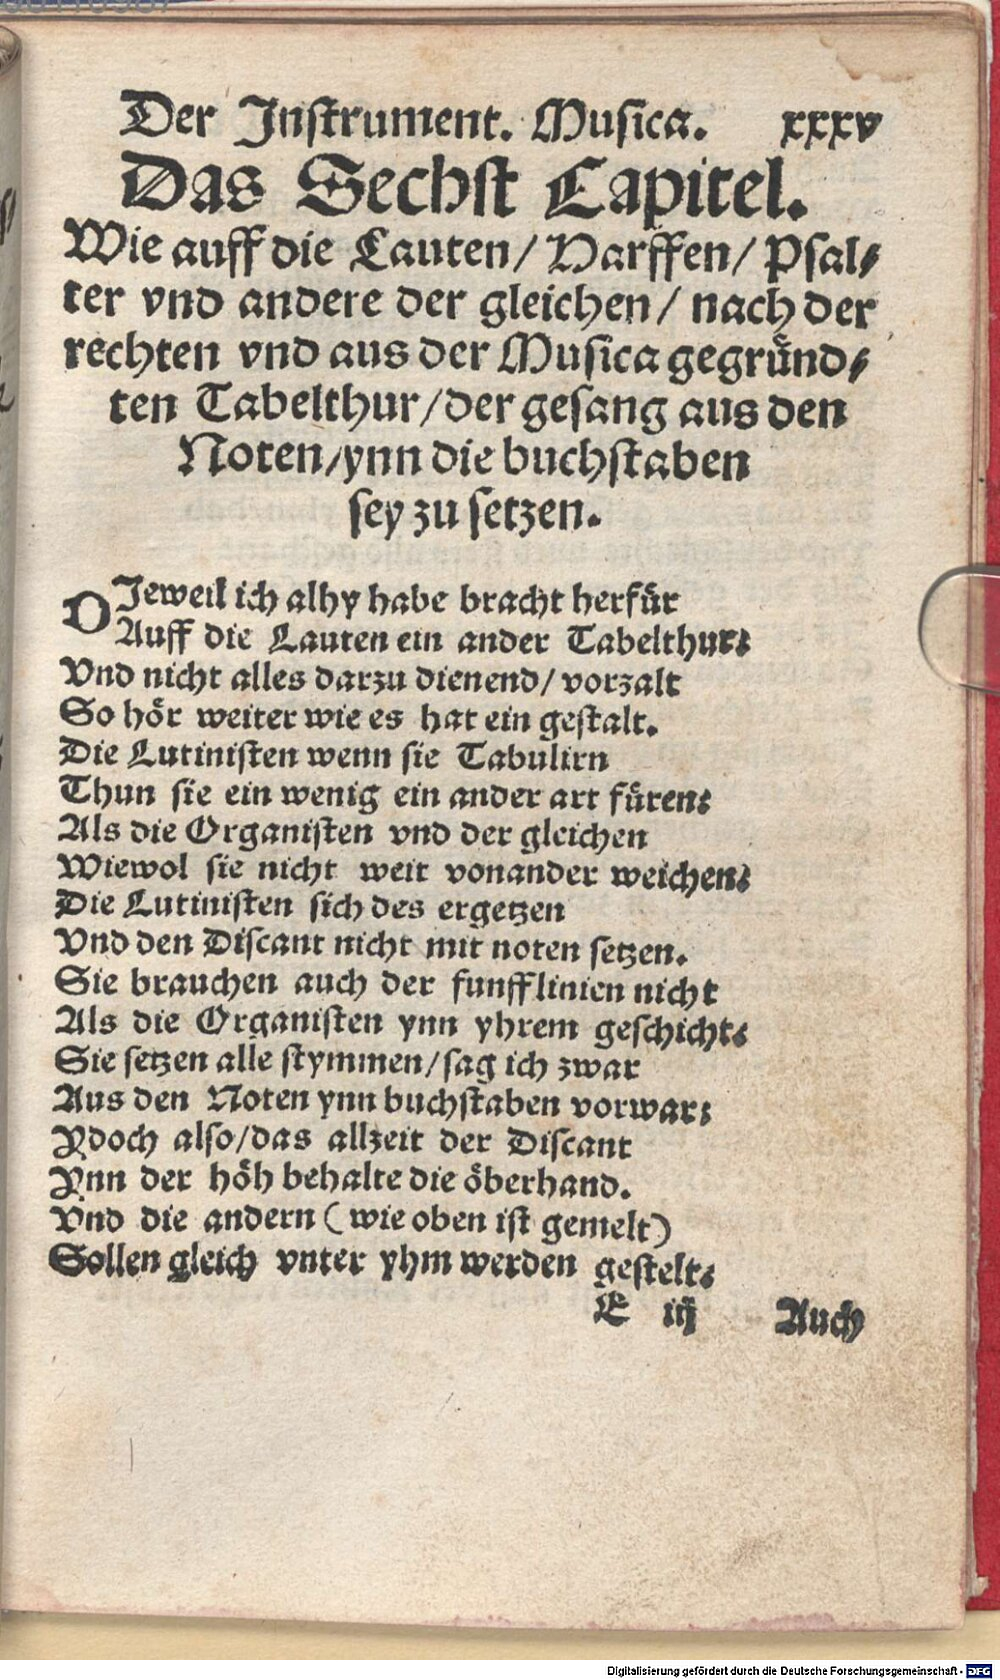 Der Instrument. Musica. xxxv
Das Sechst Capitel.
Wie auff die Lauten / Harffen / Psal-
ter vnd andere der gleichen / nach der
rechten vnd aus der Musica gegründ-
ten Tabelthur / der gesang aus den
Noten / ynn die buchstaben
sey zu setzen.
DJeweil ich alhy habe bracht herfür
Auff die Lauten ein ander Tabelthur:
Vnd nicht alles darzu dienend / vorzalt
So hör weiter wie es hat ein gestalt.
Die Lutinisten wenn sie Tabulirn
Thun sie ein wenig ein ander art füren:
Als die Organisten vnd der gleichen
Wiewol sie nicht weit vonander weichen:
Die Lutinisten sich des ergetzen
Vnd den Discant nicht mit noten setzen.
Sie brauchen auch der funfflinien nicht
Als die Organisten ynn yhrem geschicht:
Sie setzen alle stymmen / sag ich zwar
Aus den Noten ynn buchstaben vorwar:
Ydoch also / das allzeit der Discant
Ynn der höh behalte die öberhand.
Vnd die andern ( wie oben ist gemelt )
Sollen gleich vnter yhm werden gestelt:
E iij Auch
Digitalisierung gefördert durch die Deutsche Forschungsgemeinschaft - DFG